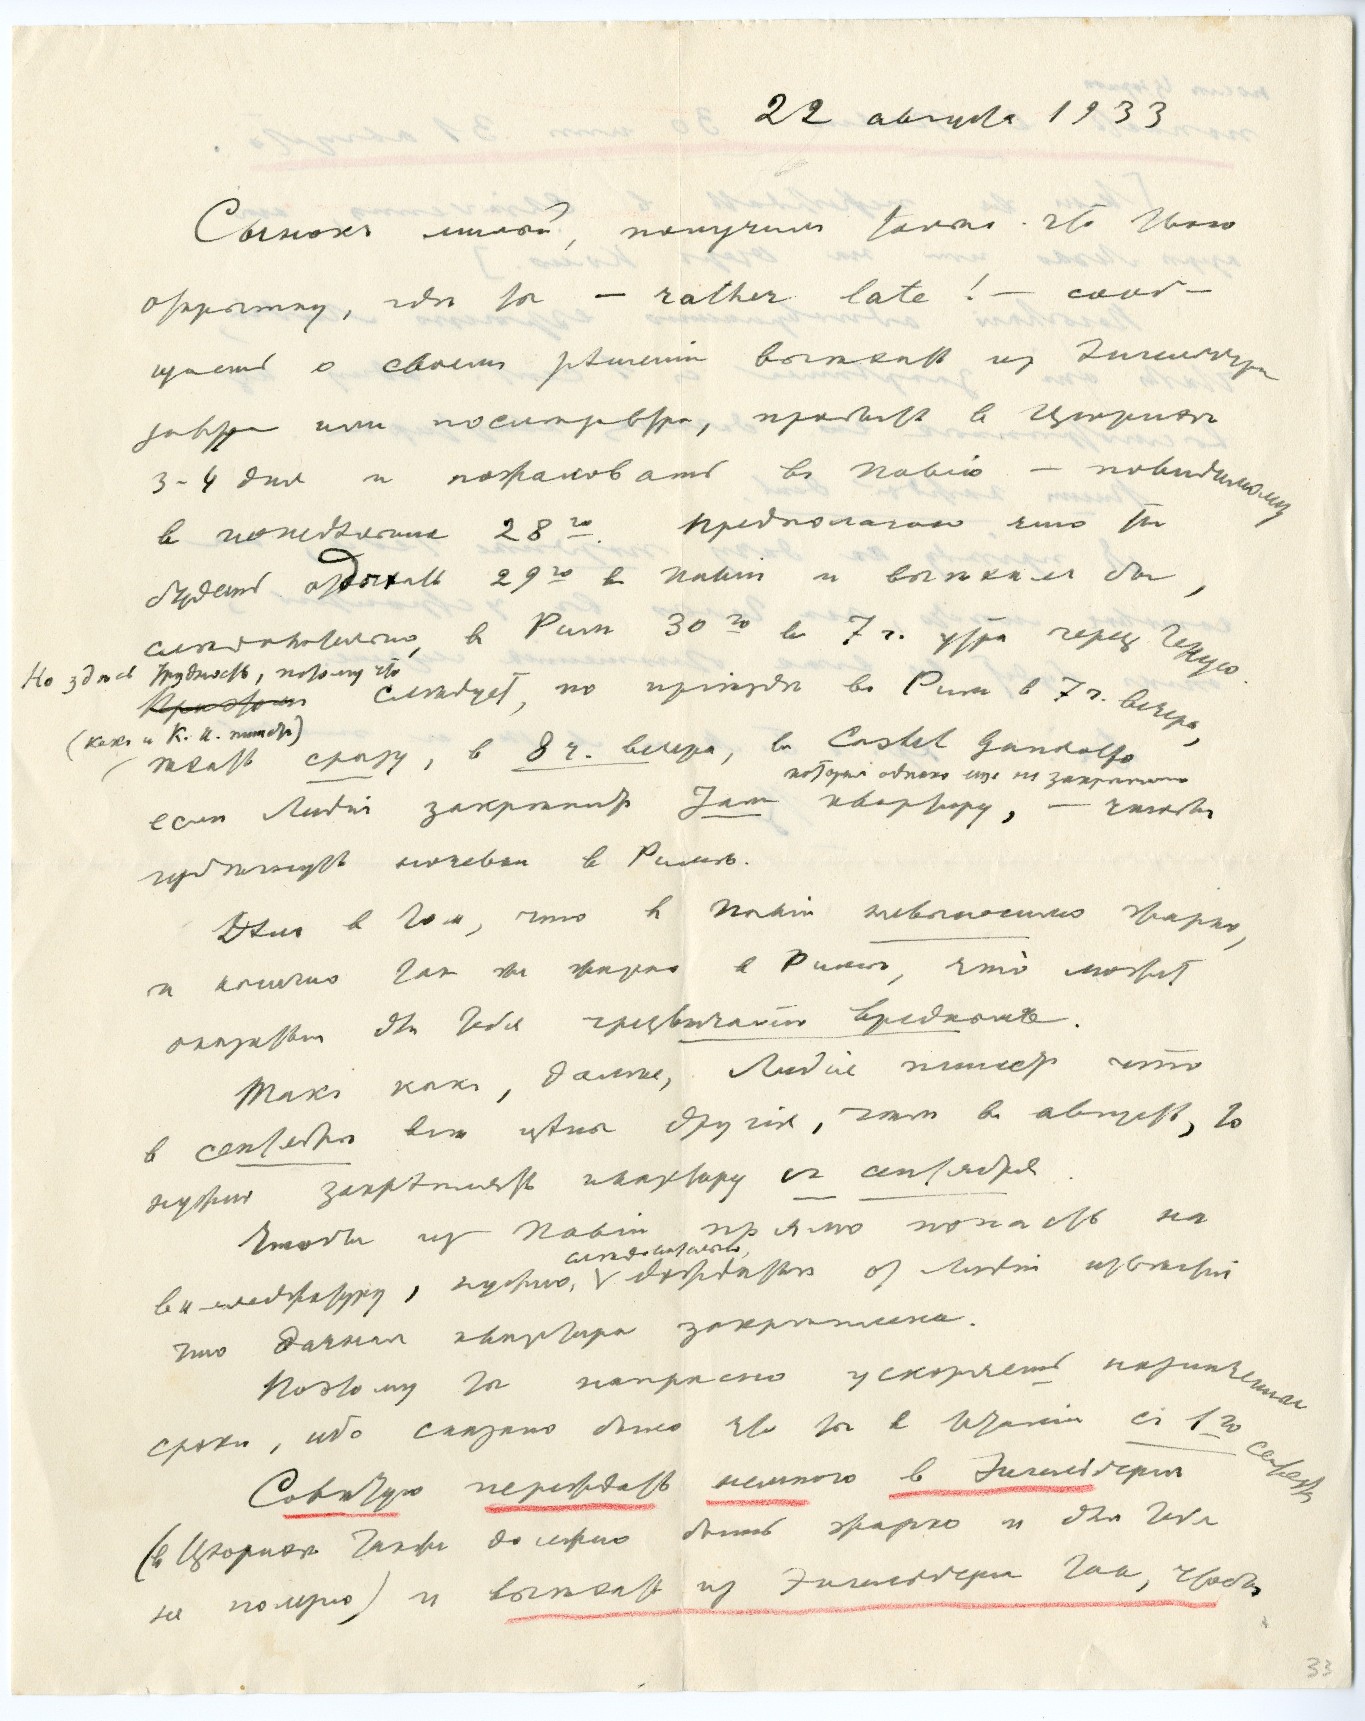 22 августа 1933
Сынокъ милый, получили только что твою
открытку, гдѣ ты — rather late! — сооб-
щаешь о своемъ рѣшеніи выѣхать из Энгельберга
завтра или послѣзавтра, пробыть в Цюрихѣ
3-4 дня и пожаловать въ Павію — повидимому
в понедѣльникъ 28го. Предполагаю что ты
будешь отдыхать 29го в Павіи и выѣхалъ бы,
слѣдовательно, в Римъ 30го въ 7 ч. утра через Геную.
Но здѣсь трудность, потому что
слѣдуетъ, по пріѣздѣ въ Римъ в 7 ч. вечера,
(какъ и К. И. пишетъ)
ѣхать сразу, в 8 ч. вечера, въ Castel Gandolfo
которая однако еще не закрѣплена
если Лидія закрѣпитъ там квартиру, — чтобы
избѣгнуть ночевки в Римѣ.
Дѣло в том, что в Павіи невыносимо жарко,
и конечно так же жарко в Римѣ, что можетъ
оказаться для тебя чрезвычайно вреднымъ.
Такъ какъ, далѣе, Лидія пишетъ что
в сентябрѣ всѣ цѣны другія, чѣмъ въ августѣ, то
нужно закрѣплять квартиру съ сентября.
Чтобы из Павіи прямо попасть на
слѣдовательно,
вилледжатуру, нужно, дождаться от Лидіи извѣстій
что дачная квартира закрѣплена.
Поэтому ты напрасно ускоряешь назначенные
сроки, ибо сказано было что ты в Италіи съ 1го сентября
Совѣтую переждать немного в Энгельбергѣ
(в Цюрихѣ также должно быть жарко и для тебя
не полезно) и выѣхать из Энгельберга так, чтобы
33